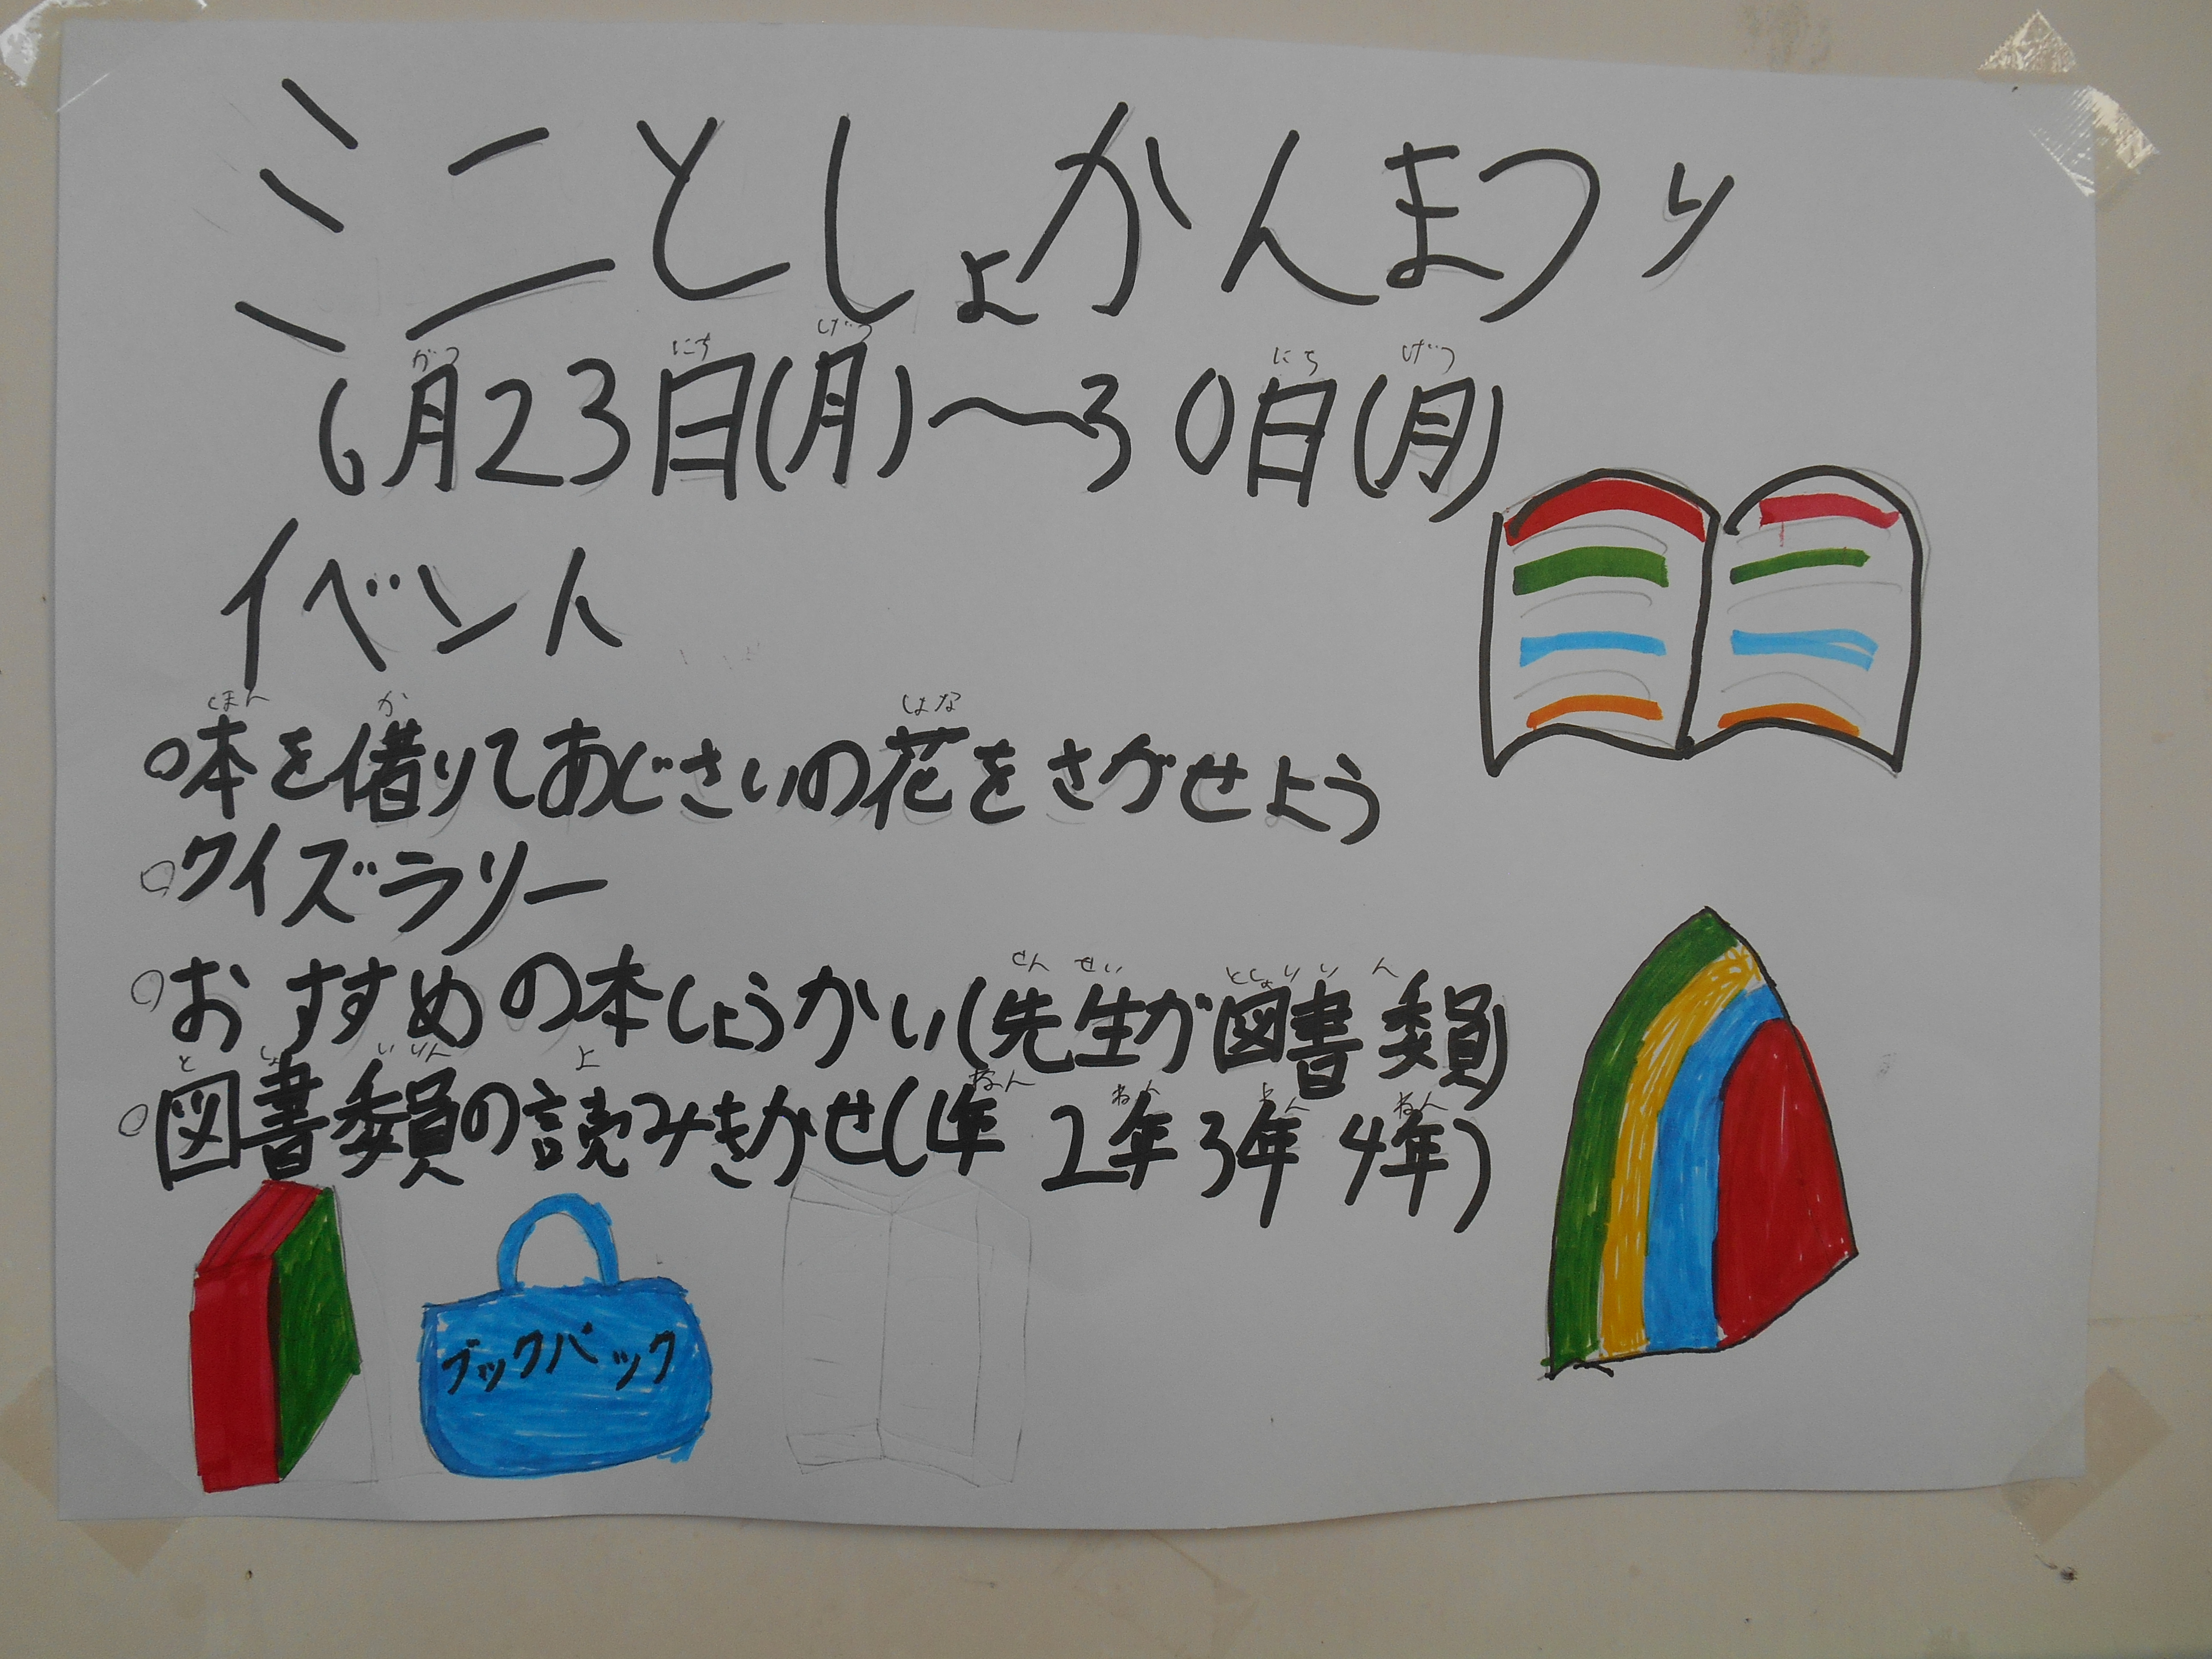 ミニとしょかんまつり
6月23日(月)～30日(月)
イベント
○本を借りてあじさいの花をさがせよう
○クイズラリー
○おすすめの本しょうかい(先生が図書委員)
○図書委員の読みきかせ(1年 2年3年 4年)
ブックバック